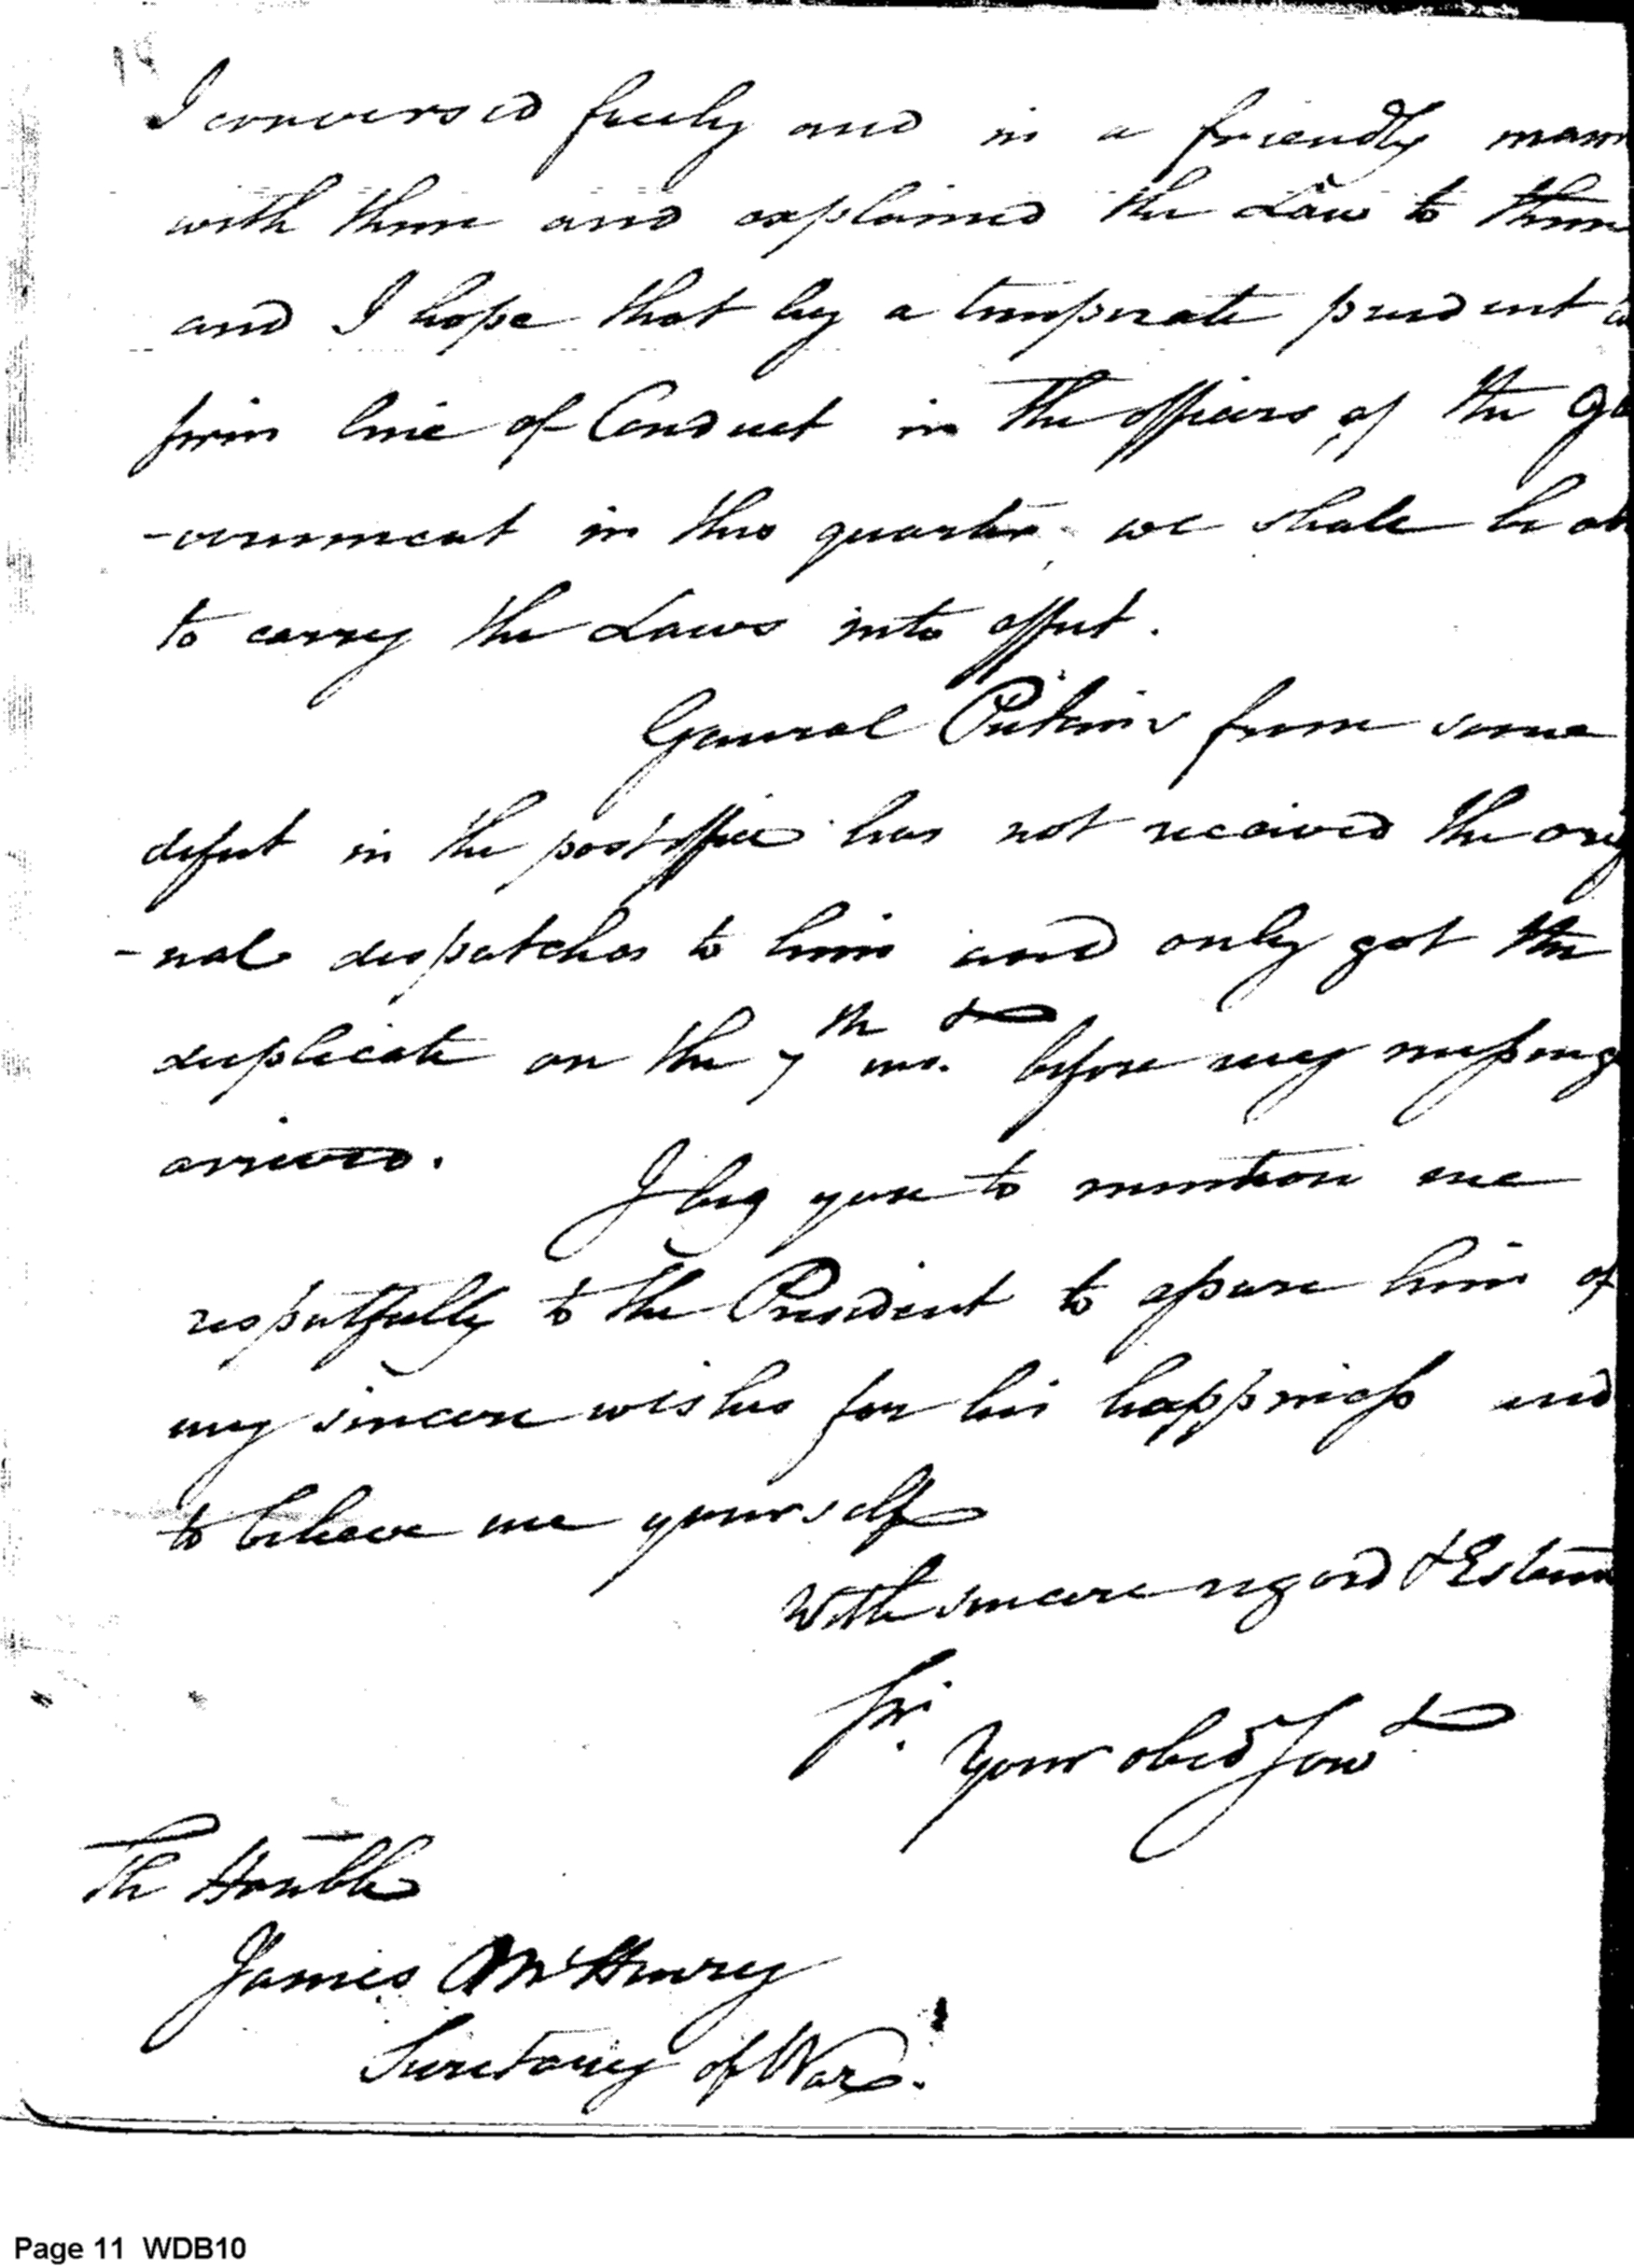 I conversed freely and in a friendly mann
with them and explained the Law to them
and I hope that by a temperate prudent a
firm line of Conduct in the officers of the go
-vernment in this quarter we shall be ab
to carry the Laws into effect.
General Pickins from some
defect in the post office has not received the orig
-nal dispatches to him and only got the
duplicate on the 7th ins. before my messeng
arrived.
I beg you to mention me
respectfully to the President to assure him of
my sincere wishes for his happiness and
to believe me yourself
With sincere regard & Esteem
Sir.
Your obed Serv
The Honble
James McHenry
Secretary of War.
Page 11 WDB10